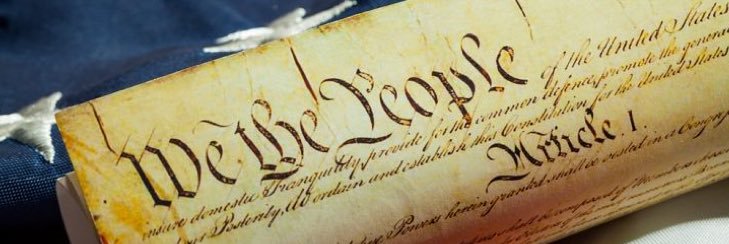 We the People of the United States
insure domestic Tranquility, provide for the common defence, promote the general
our Posterity, do ordain and establish this Constitution for the United States
Article. I.
Powers herein granted shall be vested in a Congress
shall be composed of Members